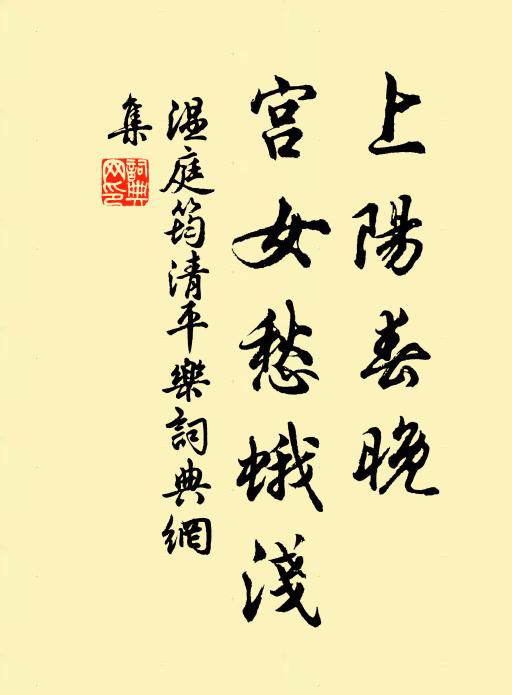 上陽春晚
宮女愁蛾淺
温庭筠清平樂詞典網
集
詞典網印